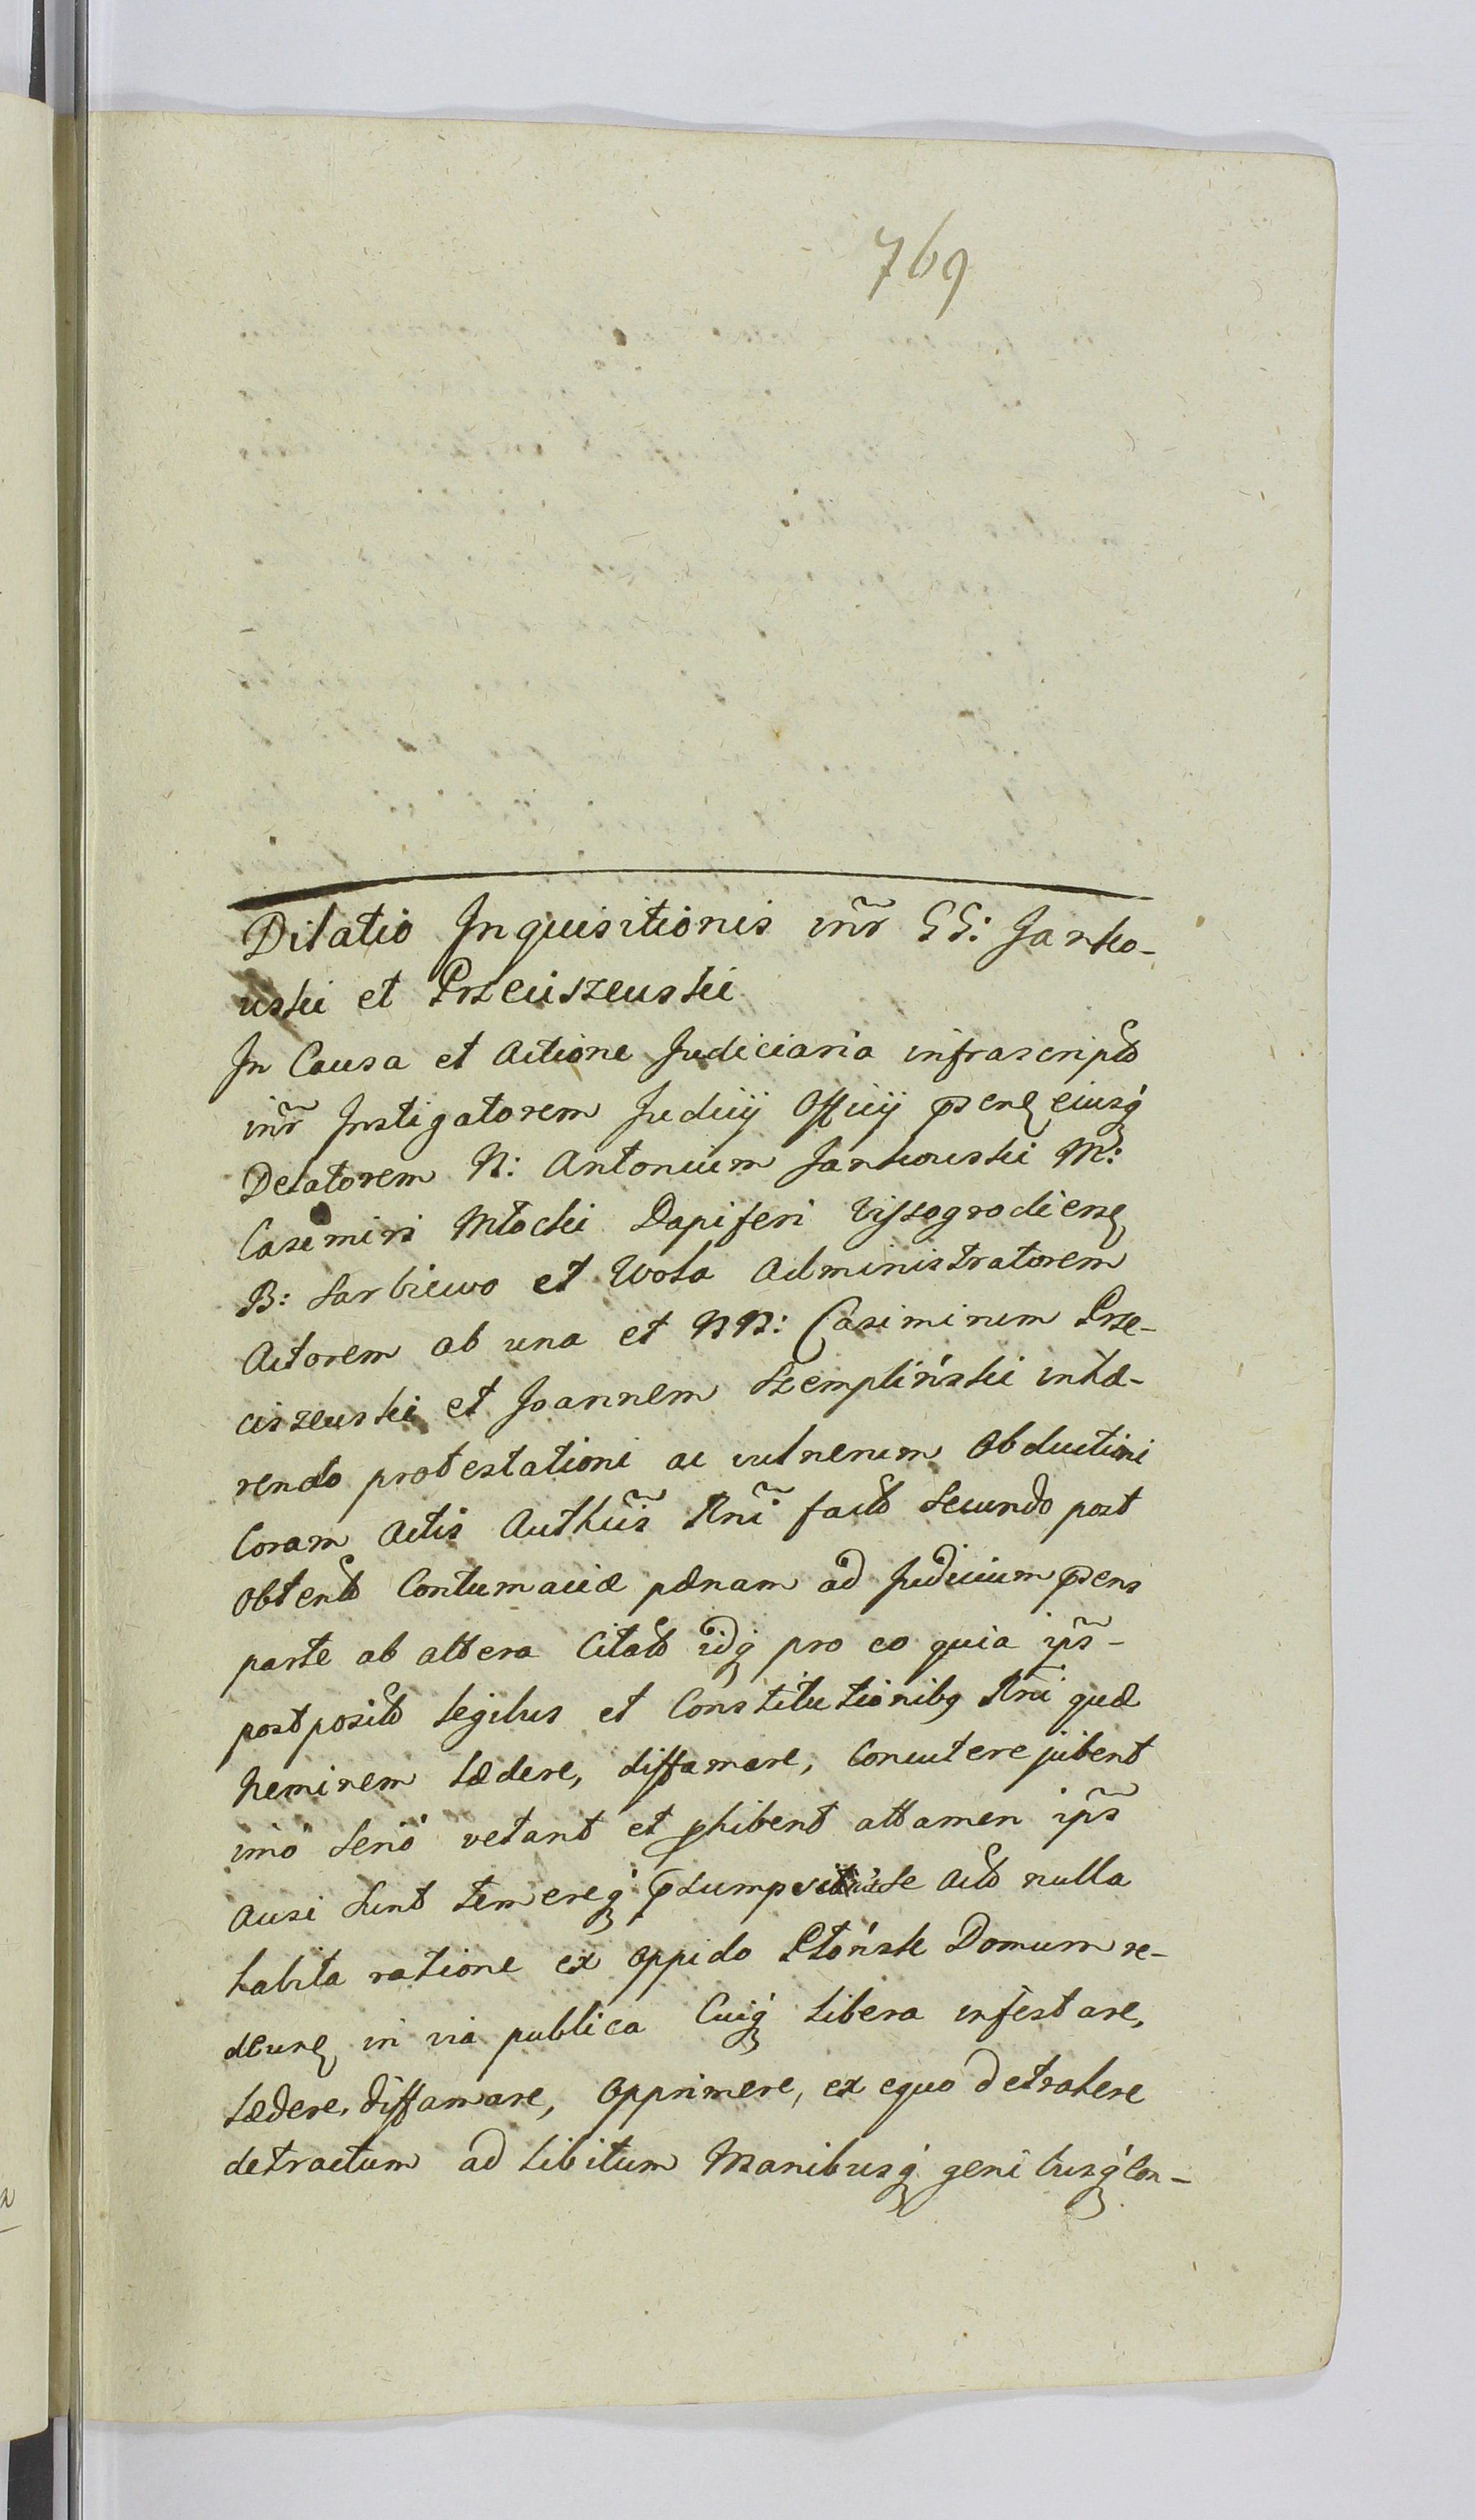 769
Dilatio Inquisitionis inr̃ GG: Janko-
wski et Przeciszewski
In Causa et Actione Judiciaria infrascripta
inr̃ Instigatorem Judicij Officij p̄sens eiusq́
Delatorem N: Antonium Jankowski M:
Casimiri Młocki Dapiferi Vissogrodiens
B: Sarbiewo et Wola Administratorem
Actorem ab una et NN: Casimirum Prze-
ciszewski et Joannem Szempliński inhæ-
rendo protestationi ac vulnerum Obductioni
Coram Actis Authcis̃ Rnĩ facta Secundo post
obtenta Contumaciæ pænam ad Judicium p̄sens
parte ab altera Citato idq́ pro eo quia ips̃-
postposito legibus et Constitutionibq Rnĩ quæ
neminem lædere, diffamare, Concutere jubent
imo serio vetant et phibent attamen ips̃
Ausi sunt temereq́ p̄sumpse Acto nulla
habita ratione ex Oppido Płońsk Domum re-
deunq in via publica Cuiq́ libera infestare,
Lædere, diffamare, Opprimere, ex equo detrahere
detractum ad libitum Manibusq́ genibusq́ Con-